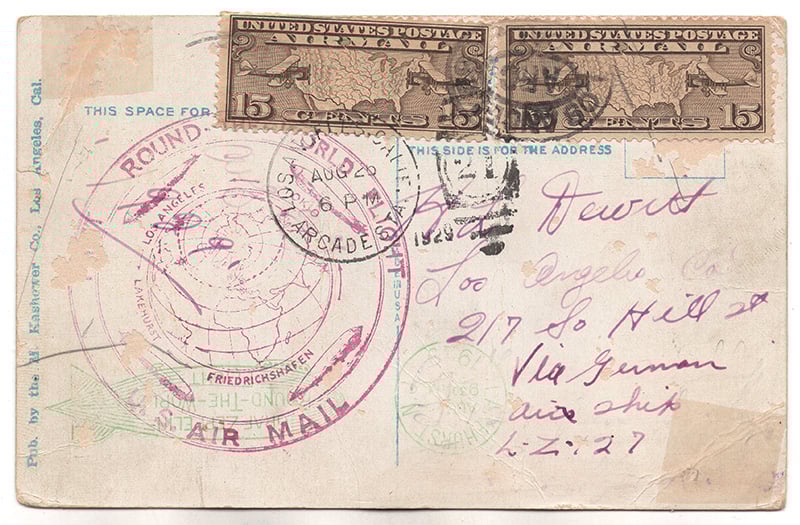 UNITED STATES POSTAGE
AIR MAIL
15 CENTS 15
UNITED STATES POSTAGE
AIR MAIL
CENTS 15
THIS SPACE FOR
THIS SIDE IS FOR THE ADDRESS
Pub. by the M. Kashower Co., Los Angeles, Cal.
ROUND- WORLD FLIGHT
LOS ANGELES
TOKIO
LAKEHURST
FRIEDRICHSHAFEN
U.S. AIR MAIL
LOS ANGELES, CALIF.
AUG 26
6 PM
1929
ARCADE STA
21
Dewitt
Los Angeles Co
217 So Hill st
Via German
air ship
L-Z-127
ROUND-THE-WORLD